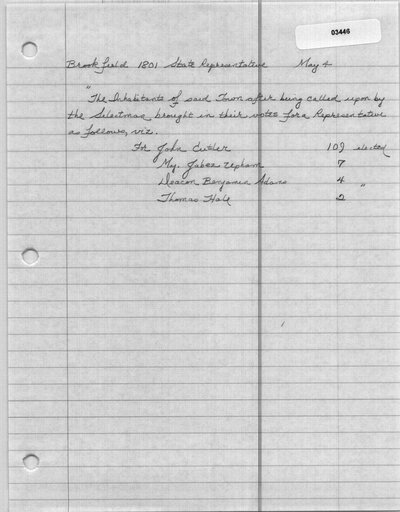 03446
Brookfield 1801 State Representative May 4
"The Inhabitants of said Town after being called upon by
the Selectmen brought in their votes for a Representative
as follows, viz.
For John Cutler 102 elected
Maj. Jabez Upham 7
Deacon Benjamin Adams 4 "
Thomas Hale 2